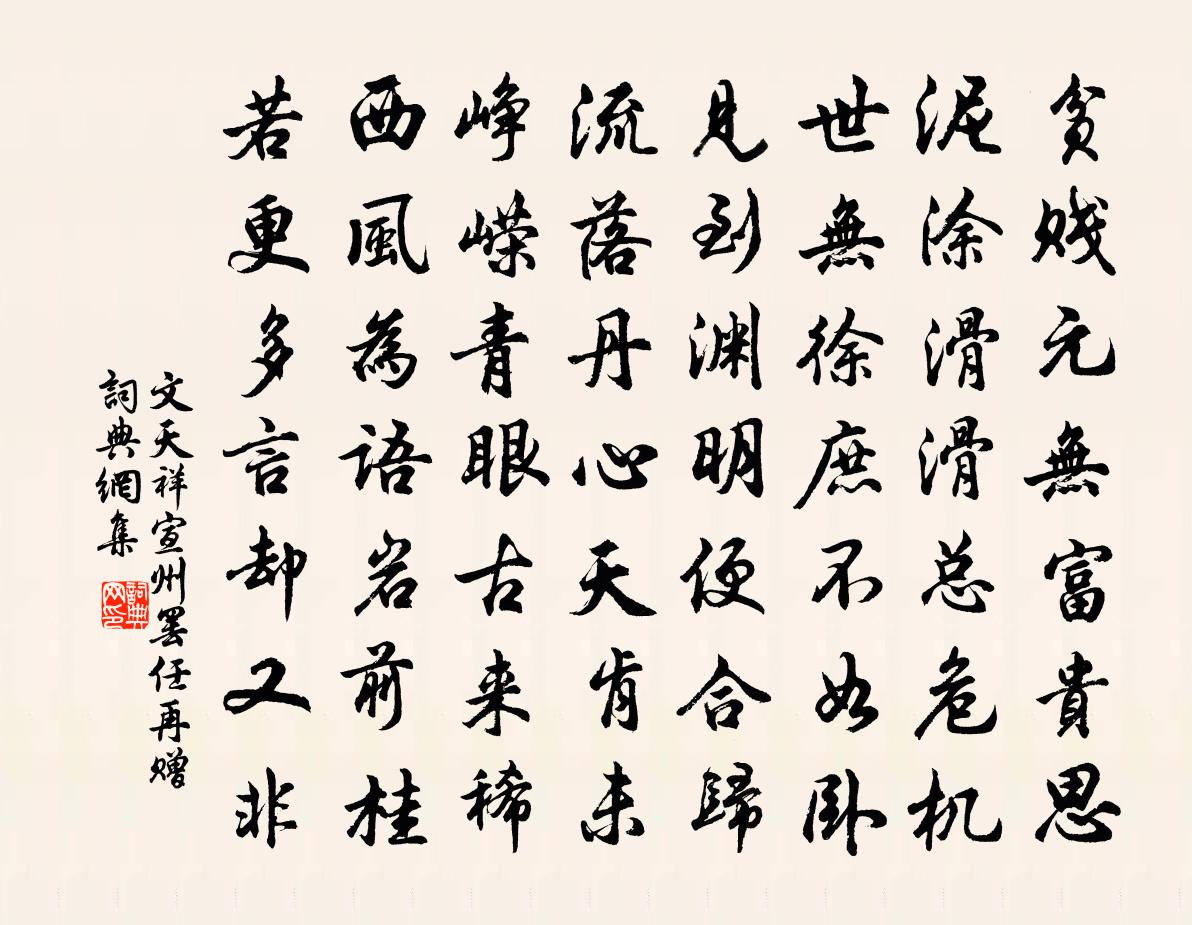 貧賤元無富貴思
泥涂滑滑总危机
世無徐庶不如卧
見到渊明便合歸
流落丹心天肯未
峥嵘青眼古来稀
西風為語岩前桂
若更多言却又非
文天祥宣州罢任再赠
詞典網集
詞典网印